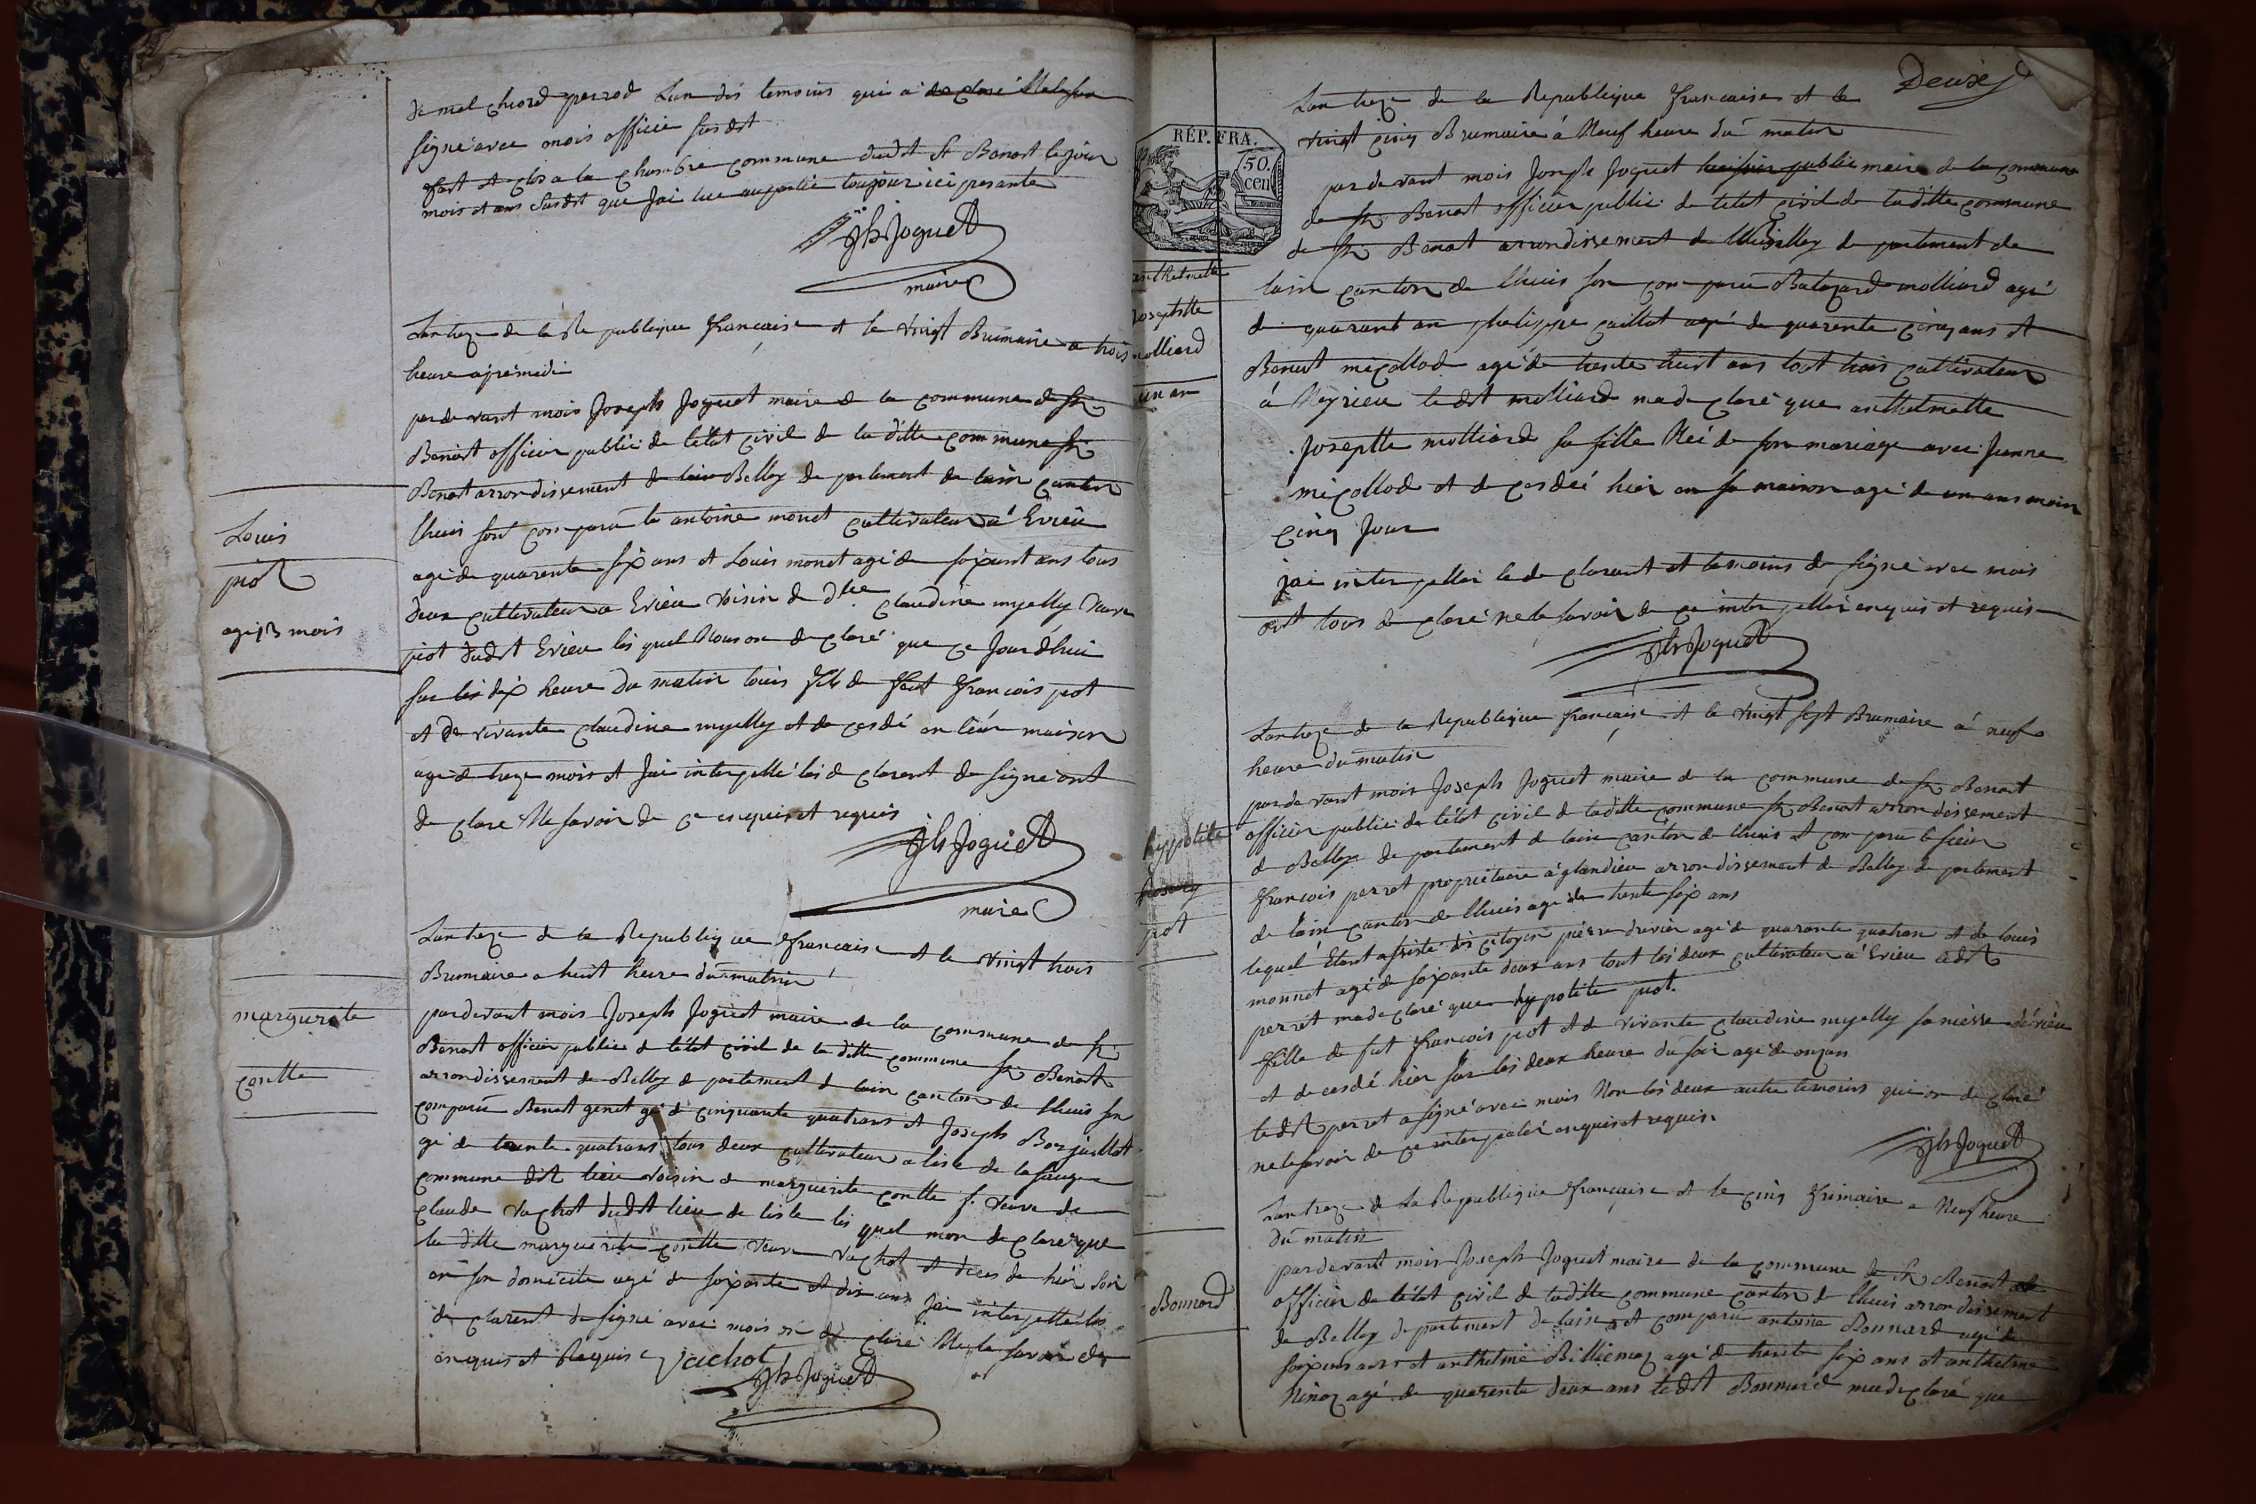 de mel chiord perrod Lun dés temoins qui a de claré Ne le savoir
signé avec mois officié susdit
fait et clos a la chambre commune dudit St Benoit le jour
mois et ans susdit que jai lue au partie toujour ici presante
Jh Joguet
maire
Lan treze de la Re publique francaise et le vingt Brumaire a trois
heure aprè midi
par de vant mois Joseph Joguet maire de la commune de St
Benoit officier public de létat civil de la ditte commune St
Benoit arrondissement de Belley de partement de lain canton
lhuis sont comparu antoine monet cultivateur a Evieu
agé de quarente six ans et Louis monet agé de soixant ans tous
deux cultivateur a Evieu voisin de dtte claudine myelly veuve
piot dudit Evieu les quel Nous on de claré que ce Jourdhui
sur les dix heure du matin louis fils de feut francois piot
et de vivante claudine myelly et de cesdé en leur maison
agé de treze mois et Jai interpellé les de clarent de signé ont
de claré Ne savoir de ce enquis et requis
Jh Joguet
maire
Louis
piot
agé 13 mois
Lan treze de la Republique francaise et le vingt trois
Brumaire a huit heure du matin
par devant mois Joseph Joguet maire de la commune de St
Benoit officier public de létat civil de la ditte commune St Benoit
arrondissement de Belley de partement de lain canton de lhuis son
comparu Benoit genet gé de cinquante quatrans et Joseph
gé de trente quatrans tous deux cultivateur a lisle de la
commune dit lieu voisin de marguerite contte f. veuve de
claude vachot dudit lieu de lisle les quel mon de claré que
la ditte marguerite contte veuve vachot et deces de hier soir
en son domicile agé de soixante et dix ans Jai interpellé les
de clarent de signé avec mois on de claré Ne le savoir de
enquis et Requis vachot
Jh Joguet
marguerite
contte
Deux
RÉP. FRA.
50.
cen
Lan treze de la Republique francaise et le
vingt cinq Brumaire a Neuf heure du matin
par de vant mois Joseph Joguet public maire de la commune
de St Benoit officier public de létat civil de la ditte commune
de St Benoit arrondissement de Belley de partement de
lain canton de lhuis son comparu Balazard molliard agé
de quarant an phelippe caillot agé de quarente cinq ans et
Benoit micollod agé de trente huit ans tout trois cultivateur
á Meyrieu ledit molliard ma de claré que anthelmette
Josephtte molliard sa fille Née de son mariage avec Jeanne
micollod et de cesdeé hier en sa maison agé de un ans moin
cinq Jour
jai interpellér le de clarant et temoins de signé avec mois
ont tous de claré ne le savoir de ce interpellér enquis et requis
Jh Joguet
anthelmette
Josephtte
molliard
un an
Lan treze de la Republique francaise et le vingt sept Brumaire á neuf
heure du matin
par de vant mois Joseph Joguet maire de la commune de St Benoit
officier public de létat civil de la ditte commune St Benoit arron dissement
de Belley de partement de lain canton de lhuis et comparu le sieur
francois perret propriétaire á glandieu arron dissement de Belley de partement
de lain canton de lhuis agé de trente six ans
lequel étant assisté des citoyen pierre druvier agé de quarante quatran et de louis
monnet agé de soixante deux ans tout les deux cultivateur a Evieu ledit
perret ma de claré que hypolite piot
fille de fut francois piot et de vivante claudine myelly sa niesse
et de cesdé hier sur les deux heure du soir agé de onzan
ledit perret a signé avec mois Non les deux autre temoins qui on de claré
ne le savoir de ce interpellér enquis et requis.
Jh Joguet
hypolite
piot
Lan treze de la Republique francaise et le cinq frimaire a Neuf heure
du matin
par devant mois Joseph Joguet maire de la commune de St Benoit
officier de létat civil de la ditte commune canton de lhuis arrondissement
de Belley de partement de lain et comparu antoine Bonnard agé de
soixans ans et anthelme Billiemaz agé de trente six ans et anthelme
Ninoz agé de quarente deux ans ledit Bonnard ma de claré que
Bonnard